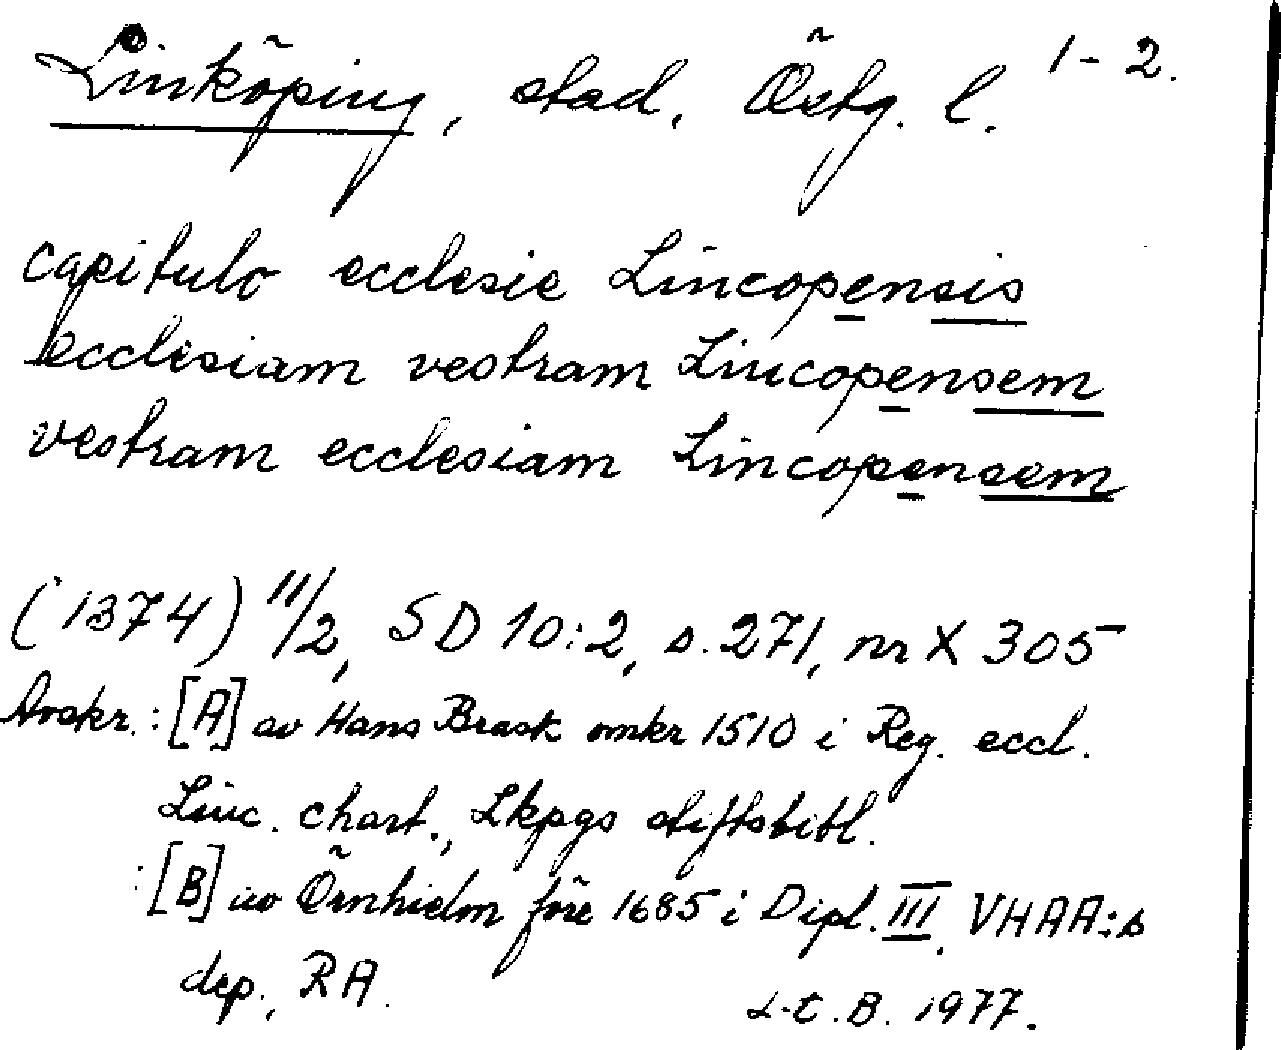 Linköping, stad, Östg. l. 1-2.
capitulo ecclesie Lincopensis
ecclesiam vestram Lincopensem
vestram ecclesiam Lincopensem
(1374) 11/2, SD 10:2, s. 271, nr X 305
Avskr.: [A] av Hans Brask omkr 1510 i Reg. eccl.
Linc. chart., Lkpgs stiftsbibl.
: [B] av Örnhielm före 1685 i Dipl. III. VHAA:s
dep., RA.
L-E. B. 1977.